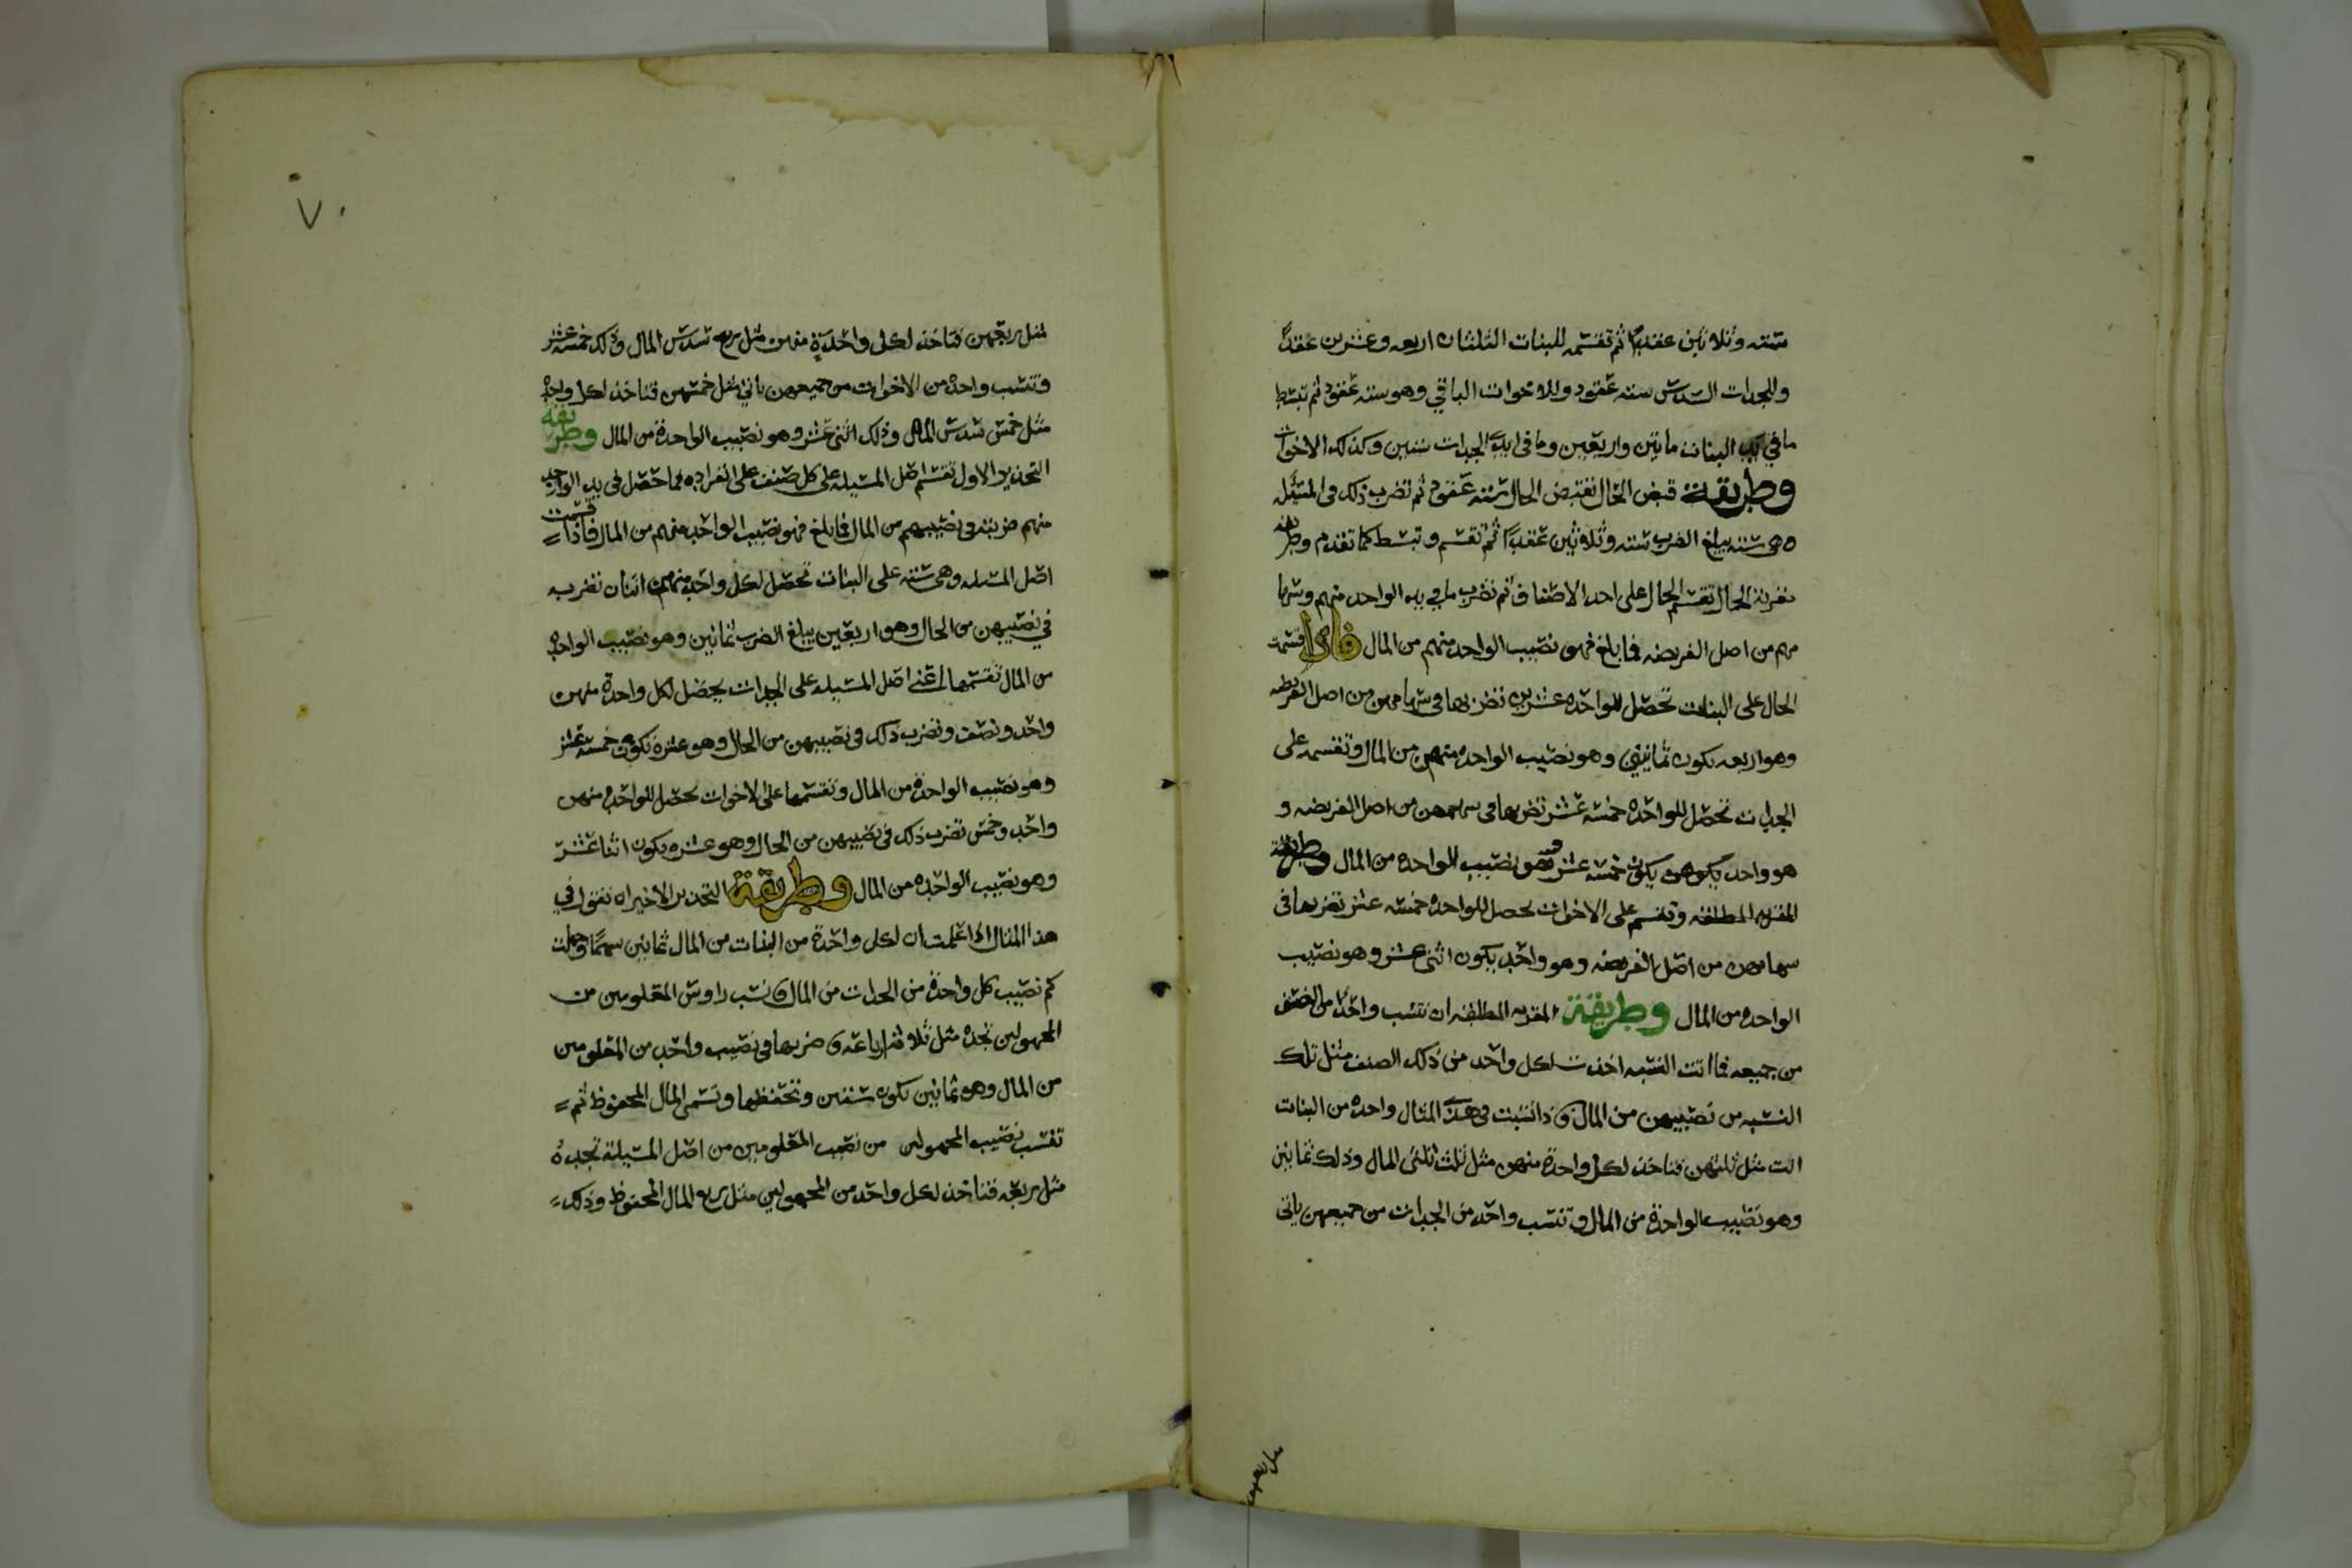 ستة وثلاثين عقدًا ثم تقسمه للبنات الثلثان اربعه وعشرين عقدًا
وللجدات السدس سته عقود وللاخوات الباقي وهو سته عقود ثم تبسط
ما في يد البنات مائتين واربعين وما في ايدي الجدات ستين وكذلك الاخوات
وطريقة قبض الحال تقبض الحال سته عقود ثم تضرب ذلك في المسئله
وهي سته يبلغ الضرب سته وثلاثين عقدًا ثم تقسم وتبسط كما تقدم وطريقه
الحال تقسم الحال على احد الاصناف ثم تضرب ما في يد الواحد منهم وسها
مهم من اصل الفريضه فما بلغ فهو نصيب الواحد منهم من المال فاذا قسمت
الحال على البنات تحصل للواحده عشرين تضربها في سهامهن من اصل الفريضه
وهو اربعه يكون ثمانين وهو نصيب الواحده منهن من المال وتقسمه على
الجدات تحصل للواحده خمسة عشر تضربها في سهمهن من اصل الفريضه و
هو واحد يكون خمسة عشر وهو نصيب الواحده من المال وطريقة
المطلقه وتقسم على الاخوات تحصل للواحده خمسه عشر تضربها في
سهامهن من اصل الفريضه وهو واحد يكون اثنى عشر وهو نصيب
الواحده من المال وطريقة المطلقه ان تنسب واحدًا من الصنف
من جميعه فما اتت النسبه اخذت لكل واحد من ذلك الصنف مثل تلك
النسبه من نصيبهن من المال فاذا نسبت في هذا المثال واحده من البنات
اتت مثل ثلثهن فتاخذ لكل واحدة منهن مثل ثلث ثلثى المال وذلك ثمانين
وهو نصيب الواحدة من المال وتنسب واحده من الجدات من جميعهن ياتى
مثل ربعهن
٧٠
مثل ربعهن فتاخذ لكل واحدةٍ منهن مثل ربع سدس المال وذلك خمسة عشر
وتنسب واحده من الاخوات من جميعهن ياتي مثل خمسهن فتاخذ لكل واحده
مثل خمس سدس المال وذلك اثنى عشر وهو نصيب الواحدة من المال وطريقه
الاول تقسم اصل المسئله على كل صنف على انفراده فما حصل في يد الواحد
منهم ضربته في نصيبهم من المال فما بلغ فهو نصيب الواحد منهم من المال فاذا قسمت
اصل المسئله وهي سته على البنات تحصل لكل واحد منهن اثنان تضربه
في نصيبهن من الحال وهو اربعين يبلغ الضرب ثمانين وهو نصيب الواحده
من المال تقسمها اعني اصل المسئله على الجدات يحصل لكل واحدة منهن
واحد ونصف وتضرب ذلك في نصيبهن من الحال وهو عشره تكون خمسة عشر
وهو نصيب الواحدة من المال وتقسمها على الاخوات يحصل للواحده منهن
واحد وخمس تضرب ذلك في نصيبهن من الحال وهو عشره يكون اثنا عشر
وهو نصيب الواحده من المال وطريقة الاخير ان تقول في
هذا المثال اذا علمت ان لكل واحدة من البنات من المال ثمانين سهمًا وجهلت
كم نصيب كل واحدة من الجدات من المال فانسب راوس المعلومين من
المجهولين تجده مثل ثلاثة ارباعه فاضربها في نصيب واحد من المعلومين
من المال وهو ثمانين تكون ستين وتحفظها وتسمى المال المحفوظ ثم
تنسب نصيب المجهولين من نصيب المعلومين من اصل المسئلة تجده
مثل ربعه فتاخذ لكل واحد من المجهولين مثل ربع المال المحفوظ وذلك